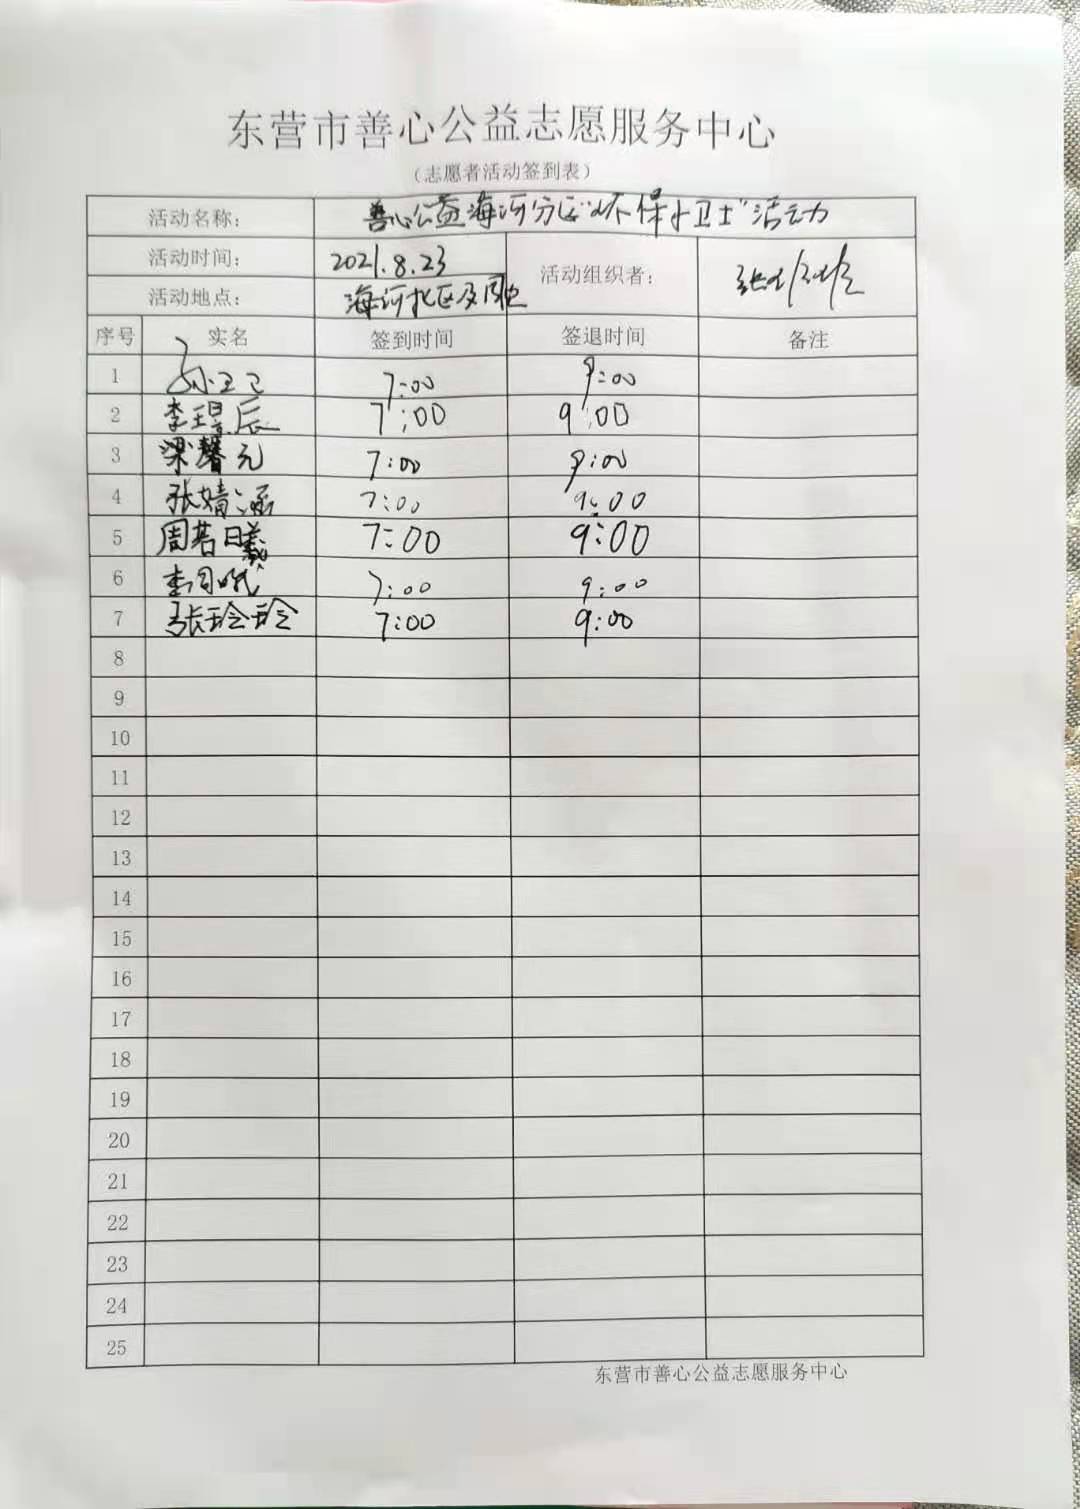 东营市善心公益志愿服务中心
（志愿者活动签到表）
活动名称： 善心公益海河分区"环保小卫士"活动
活动时间： 2021.8.23 活动组织者：
活动地点： 海河北区及周边
序号 实名 签到时间 签退时间 备注
1 孙卫己 7:00 9:00
2 李璟辰 7:00 9:00
3 梁馨元 7:00 9:00
4 张婧涵 7:00 9:00
5 周若曦 7:00 9:00
6 7:00 9:00
7 张玲玲 7:00 9:00
8
9
10
11
12
13
14
15
16
17
18
19
20
21
22
23
24
25
东营市善心公益志愿服务中心